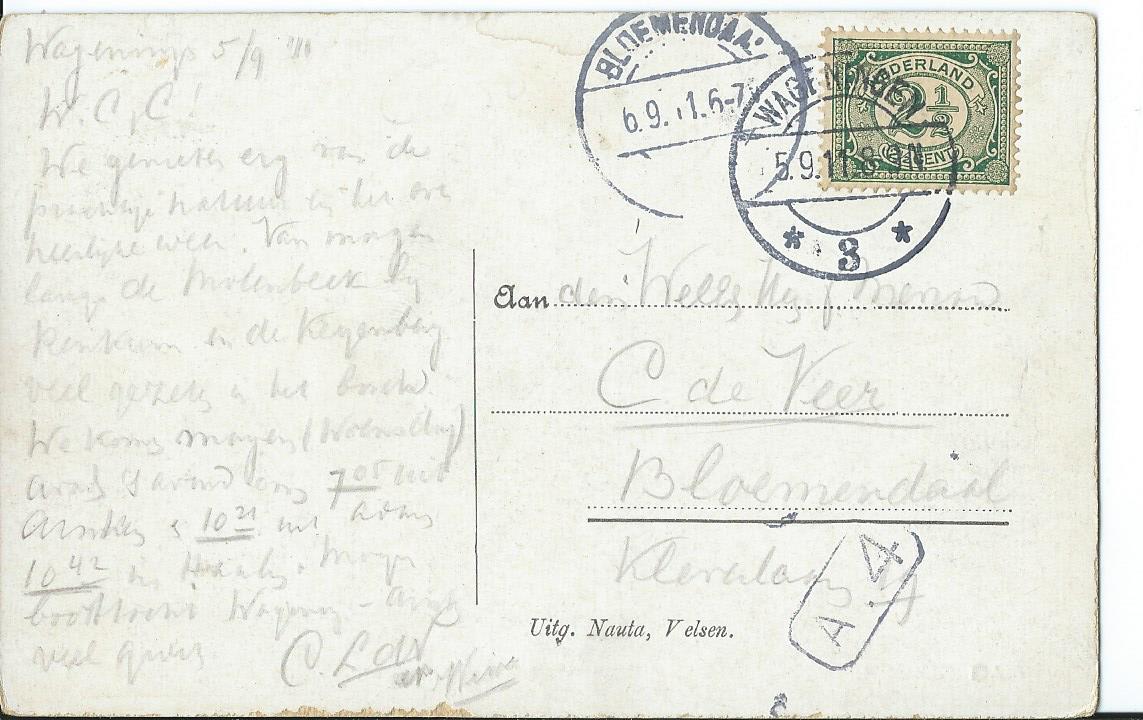 Wageningen 5/9 '11
W. C, C!
We genieten erg van de
prachtige natuur en het
heerlijke weer. Van morgen
langs de Molenbeek bij
Renkum en de Keyenberg
veel gezeten in het bosch.
We komen morgen (Woensdag)
avond 7 05 uit
Arnhem 10 21 uit
10 42 in Haarlem. Morgen
boottocht Wagening - Arnh
veel groeten
C. L. d V
BLOEMENDAAL
6.9.11.6-7
WAGENINGEN
5.9.11.8 N
* 3 *
NEDERLAND
2 1/2
CENT
Aan den
C de Veer
Bloemendaal
A 4
Uitg. Nauta, Velsen.